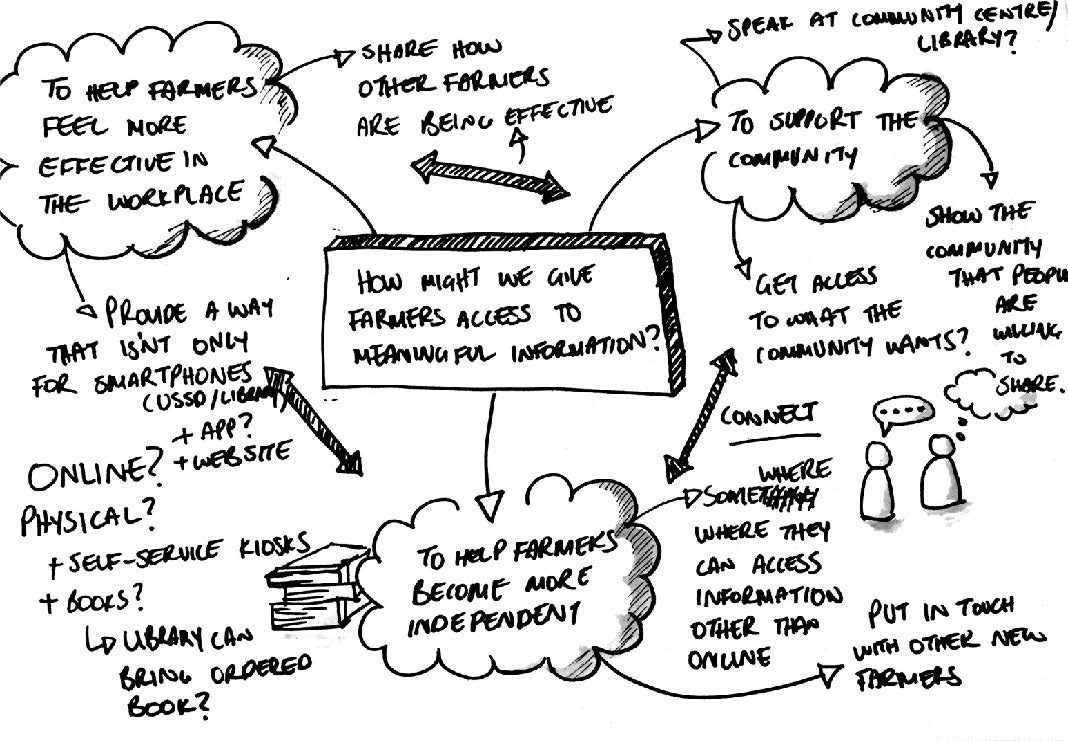 TO HELP FARMERS
FEEL MORE
EFFECTIVE IN
THE WORKPLACE
SHARE HOW
OTHER FARMERS
ARE BEING EFFECTIVE
SPEAK AT COMMUNITY CENTRE/
LIBRARY?
TO SUPPORT THE
COMMUNITY
SHOW THE
COMMUNITY
THAT PEOPLE
ARE
WILLING
TO
SHARE.
GET ACCESS
TO WHAT THE
COMMUNITY WANTS?
HOW MIGHT WE GIVE
FARMERS ACCESS TO
MEANINGFUL INFORMATION?
PROVIDE A WAY
THAT ISN'T ONLY
FOR SMARTPHONES
(USSD/LIBRARY)
+ APP?
+ WEBSITE
ONLINE?
PHYSICAL?
+ SELF-SERVICE KIOSKS
+ BOOKS?
LIBRARY CAN
BRING ORDERED
BOOK?
TO HELP FARMERS
BECOME MORE
INDEPENDENT
CONNECT
WHERE
SOME
WHERE THEY
CAN ACCESS
INFORMATION
OTHER THAN
ONLINE
PUT IN TOUCH
WITH OTHER NEW
FARMERS